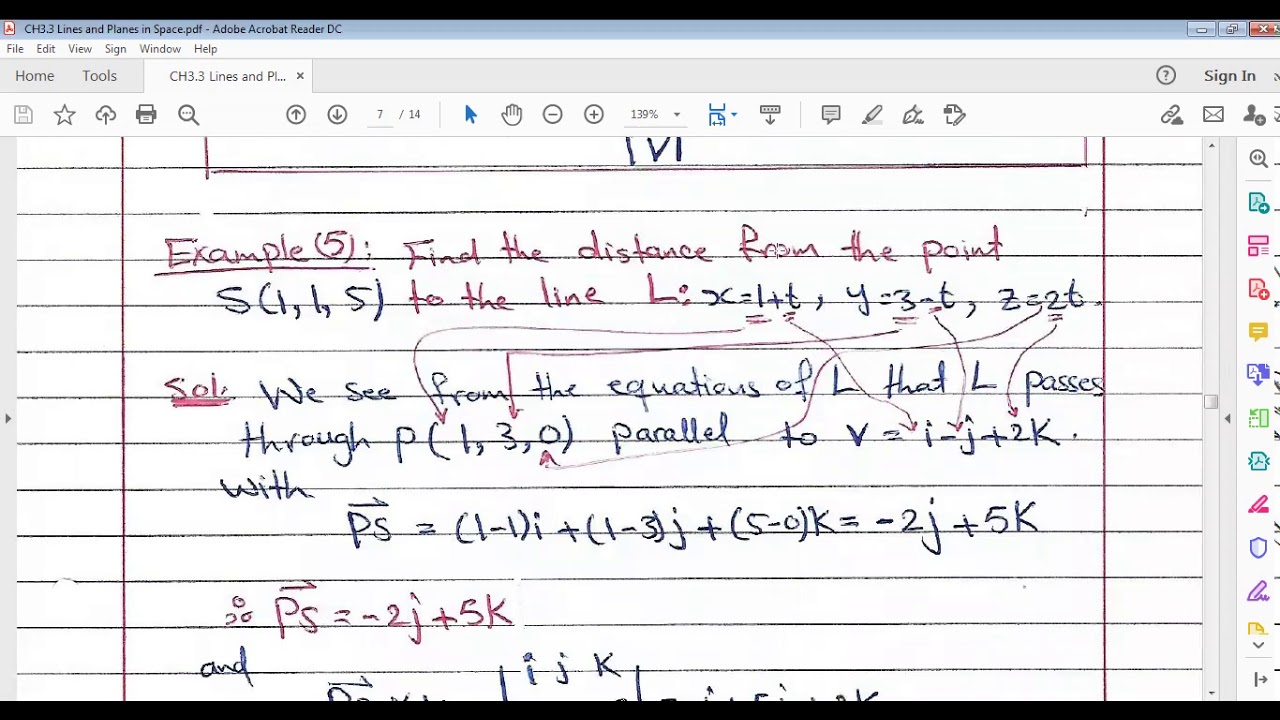 CH3.3 Lines and Planes in Space.pdf - Adobe Acrobat Reader DC
File Edit View Sign Window Help
Home Tools CH3.3 Lines and Pl... × Sign In
7 / 14 139%
|V|
Example(5): Find the distance from the point
S(1,1,5) to the line L: x=1+t, y=3-t, z=2t.
Sol. We see from the equations of L that L passes
through P(1,3,0) parallel to v = i-j+2k.
with
PS = (1-1)i+(1-3)j+(5-0)k = -2j+5k
∴ PS = -2j+5k
and
i j k